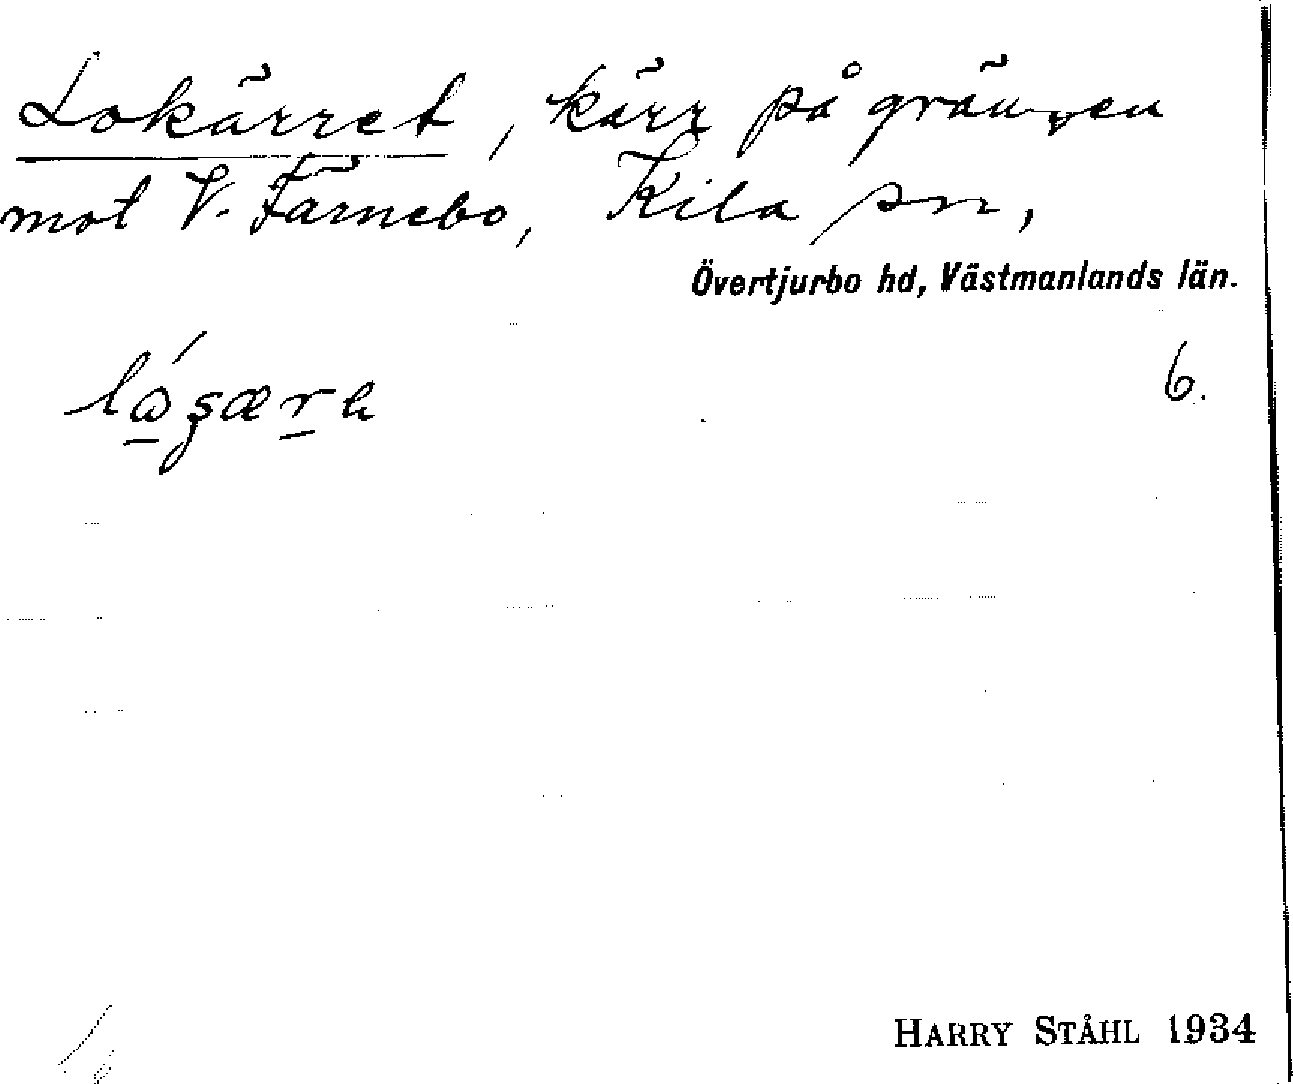 Lokärret, kärr på gränsen
mot V. Färnebo, Kila sn,
Övertjurbo hd, Västmanlands län.
6.
HARRY STÅHL 1934